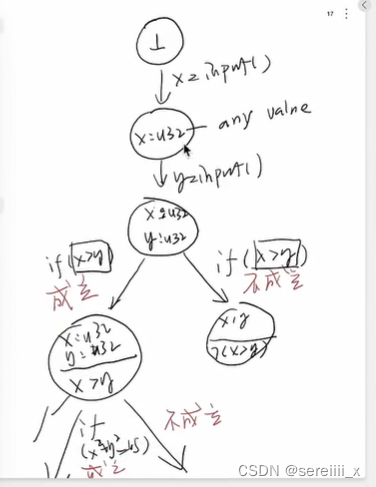 17
1
x=input()
x:u32
any value
y=input()
x:u32
y:u32
if(x>y)
成立
if(x>y)
不成立
x:u32
y:u32
x>y
x,y
7(x>y)
if
不成立
成立
CSDN @sereiiii_x